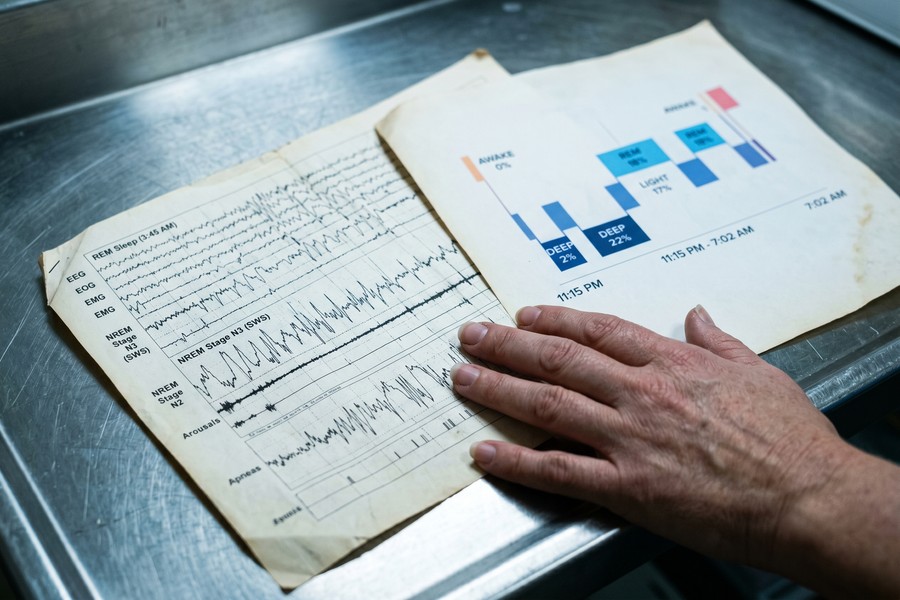 REM Sleep (3:45 AM)
EEG
EOG
EMG
NREM
Stage
N3
(SWS)
NREM Stage N3 (SWS)
NREM
Stage
N2
Arousals
Apneas
AWAKE
0%
DEEP
2%
DEEP
22%
REM
18%
LIGHT
17%
REM
AWAKE
11:15 PM
11:15 PM - 7:02 AM
7:02 AM